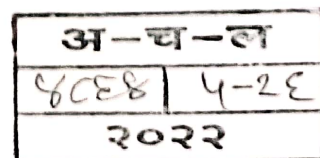 अ-च-ल
४८६४ | ५-२६
२०२२